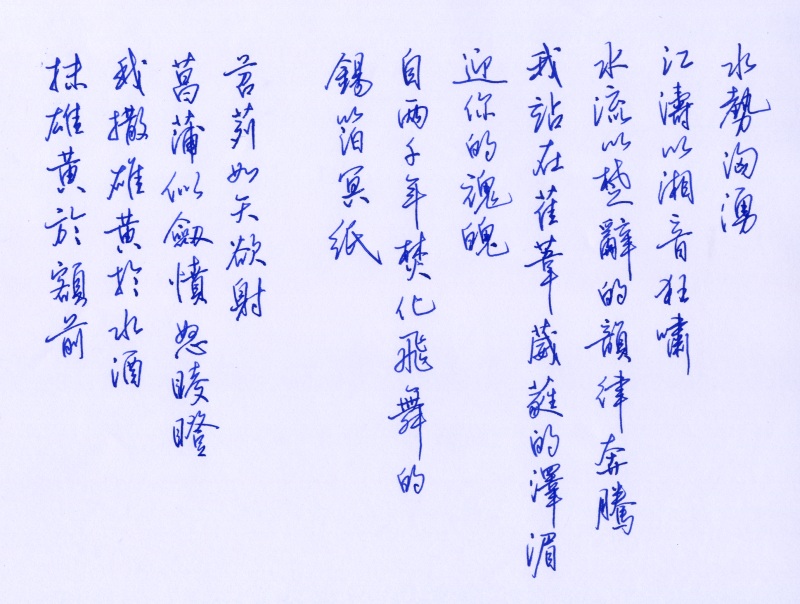 水勢洶湧
江濤以湘音狂嘯
水流以楚辭的韻律奔騰
我站在萑葦葳蕤的澤湄
迎你的魂魄
自兩千年焚化飛舞的
錫箔冥紙
苕茢如矢欲射
菖蒲似劍憤怒睖瞪
我撒雄黃於水酒
抹雄黃於額前